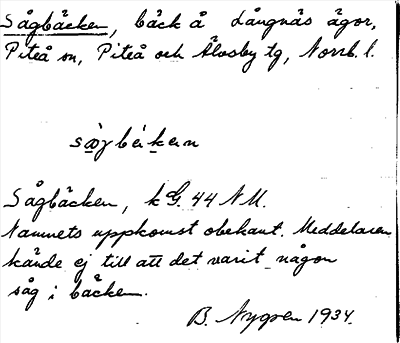 Sågbäcken, bäck å Långnäs ägor,
Piteå sn, Piteå och Älvsby tg, Norrb. l.
sògbèkən
Sågbäcken, k G. 44 NM.
Namnets uppkomst obekant. Meddelaren
kände ej till att det varit någon
såg i bäcken.
B. Nygren 1934.